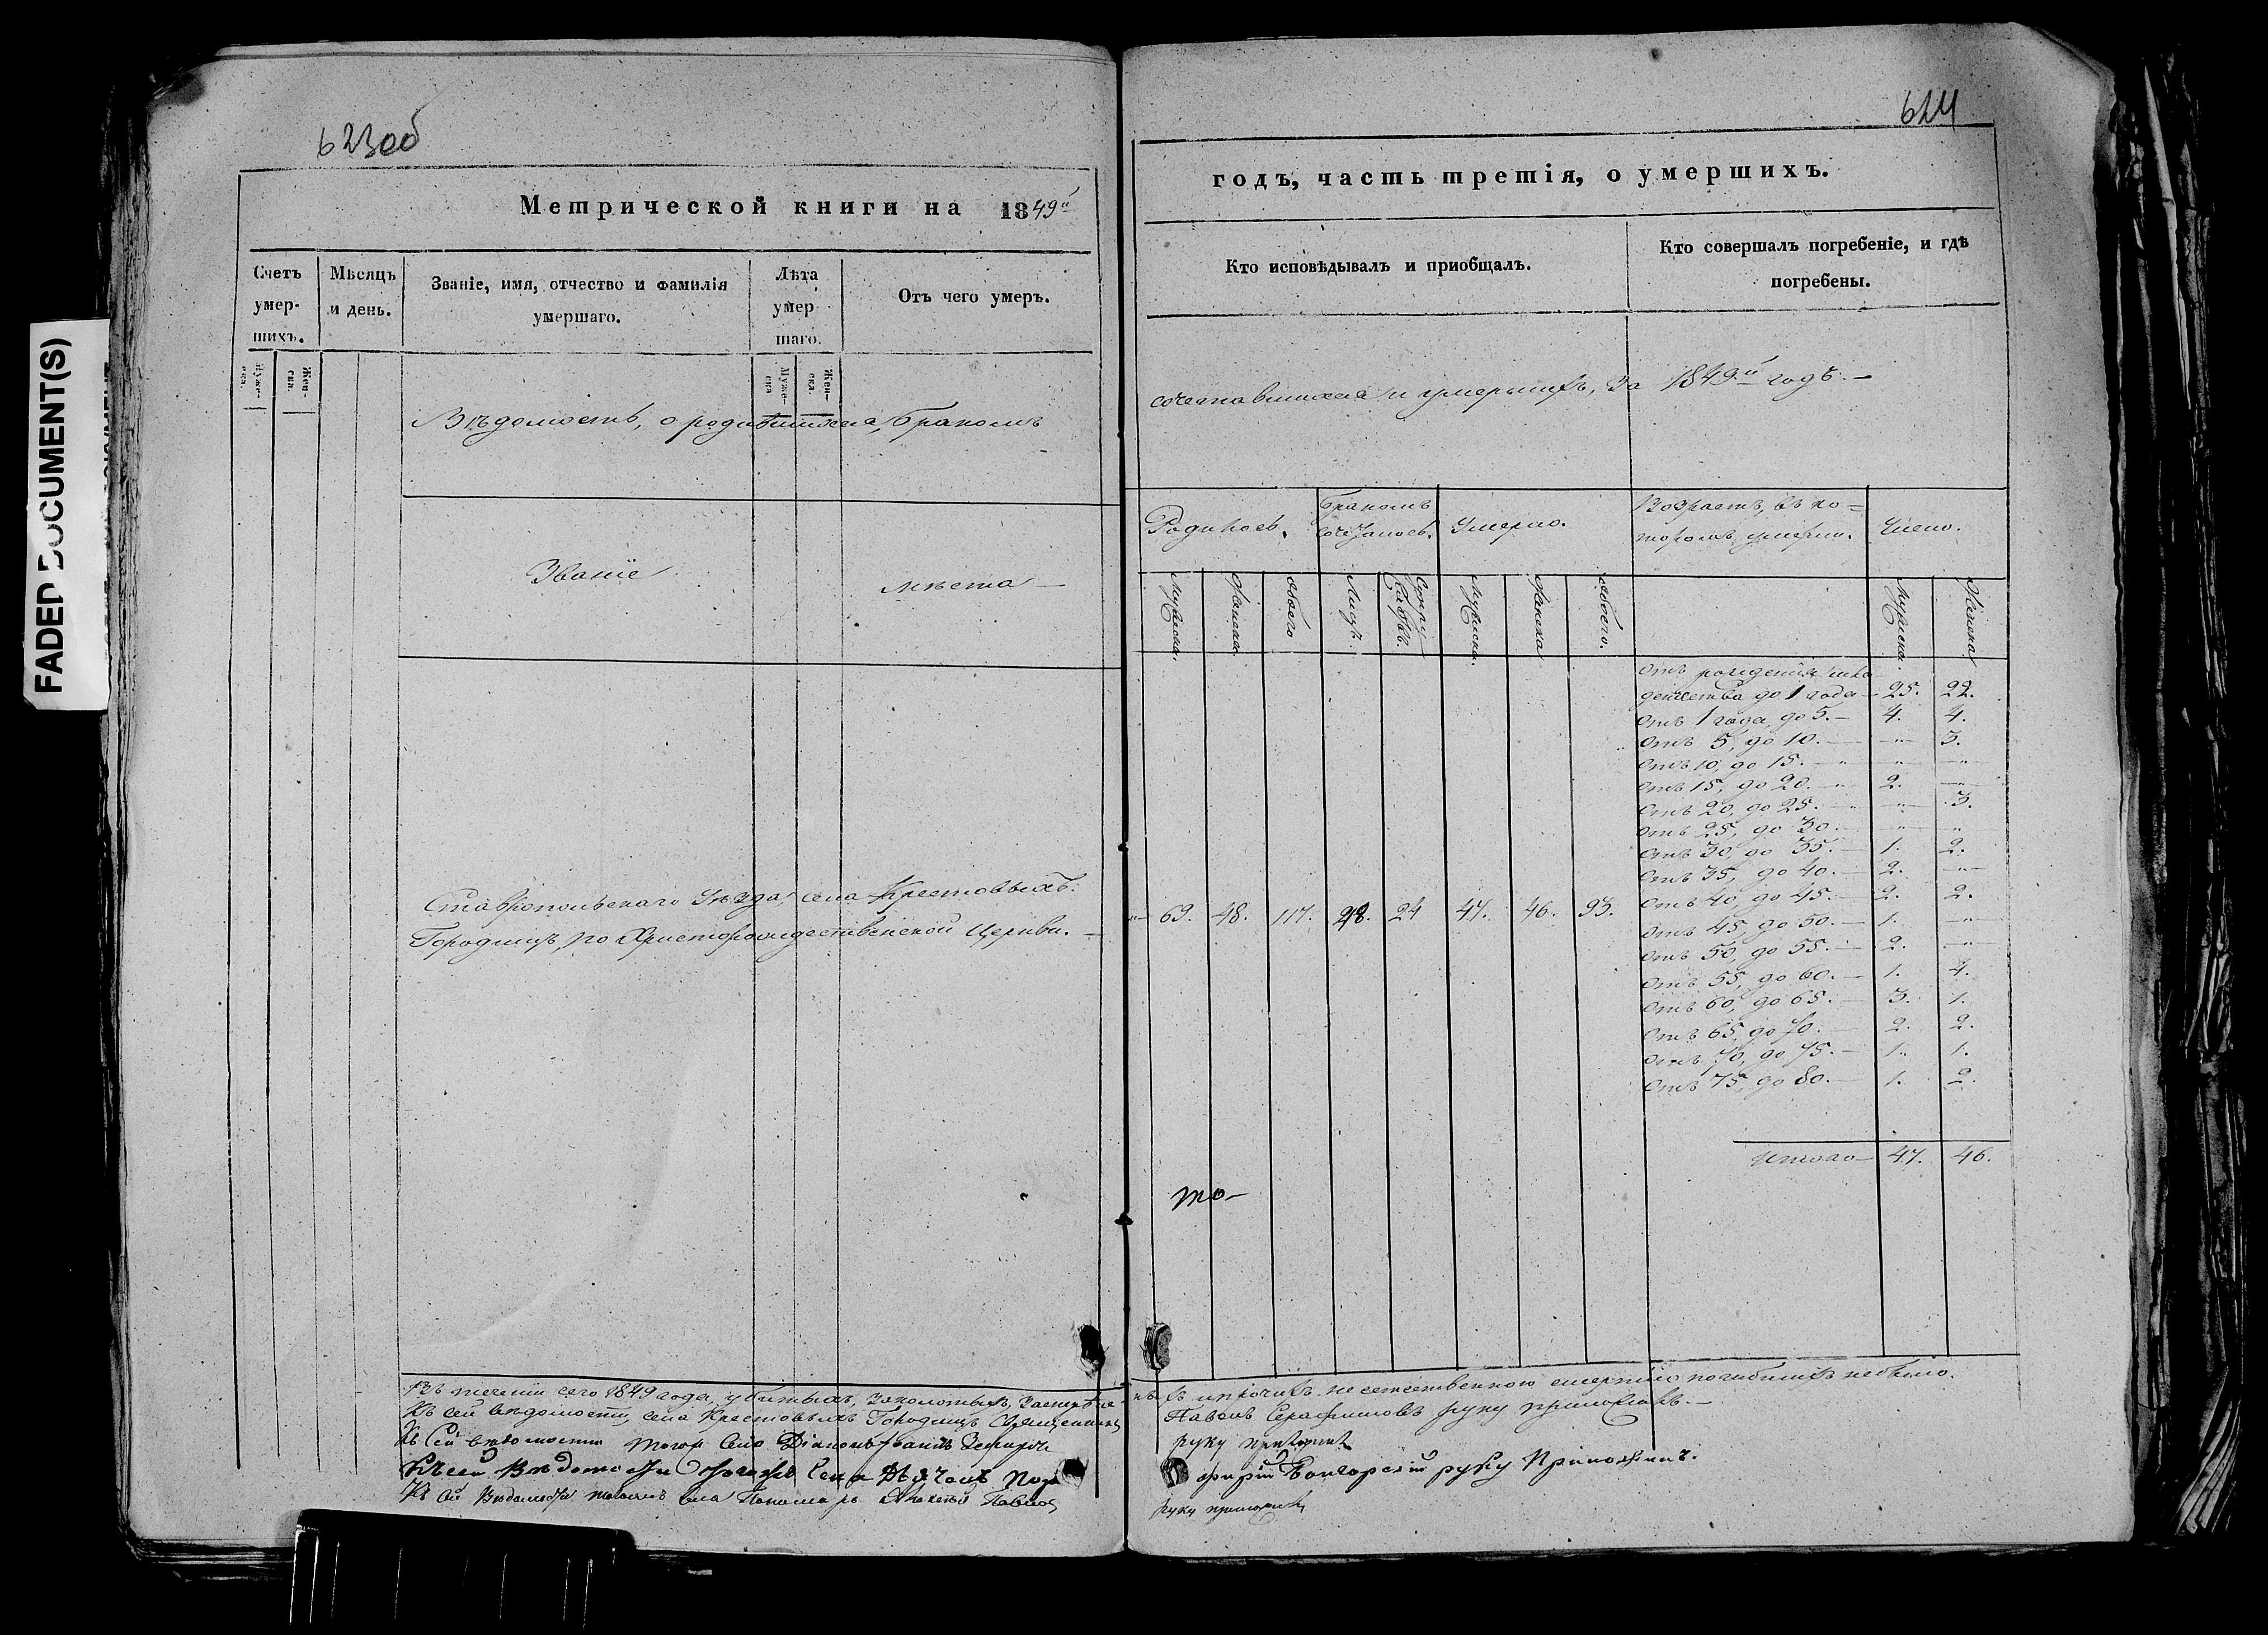 FADED DOCUMENT(S)
623об
Метрической книги на 1849й
Счетъ умер- шихъ.
Мѣсяцъ и день.
Званіе, имя, отчество и фамилія умершаго.
Лѣта умер шаго.
Отъ чего умеръ.
Муже- ска.
Жен- ска.
Муже- ска
Жен- ска.
Вѣдомость, о родившихся, бракомъ
Званіе
мѣста
Ставропольскаго Уѣзда, села Крестовыхъ
Городищъ, по Христорождественской Церкви.
Въ теченіи сего 1849 года, убитыхъ, заколотыхъ,
Къ сей вѣдомости, села Крестовыхъ Городищъ Священникъ
Къ сей вѣдомости того села Діаконъ
Къ сей Вѣдомости тогожъ села Дьячокъ Пор
Къ сей Вѣдомости села Пономарь Павлов
624
годъ, часть третія, о умершихъ.
Кто исповѣдывалъ и пріобщалъ.
Кто совершалъ погребеніе, и гдѣ погребены.
сочетавшихся и умершихъ, за 1849й годъ.—
Родилось.
Бракомъ сочеталось.
Умерло.
Возрастъ, въ ко= торомъ умерли.
Число.
Мужеска.
Женска.
обоего
Лицъ.
Супру жествъ.
Мужеска.
Женска
обоего.
Мужеска.
Женска
Отъ рожденія мла
денчества до 1 года — 25. 22.
Отъ 1 года, до 5.— 4. 4.
Отъ 5, до 10.— „ 3.
Отъ 10, до 15.— „ „
Отъ 15, до 20.— 2. „
Отъ 20, до 25.— „ 3.
Отъ 25, до 30.— „ „
Отъ 30, до 35.— 1. 2.
Отъ 35, до 40.— 2. „
Отъ 40, до 45.— 2. 2.
69. 48. 117. 48. 24 47. 46. 93.
Отъ 45, до 50.— 1. „
Отъ 50, до 55.— 2. „
Отъ 55, до 60.— 1. 4.
Отъ 60, до 65.— 3. 1.
Отъ 65, до 70.— 2. 2.
Отъ 70, до 75.— 1. 1.
Отъ 75, до 80.— 1. 2.
Итого— 47. 46.
то—
и прочихъ неестественною смертію погибшихъ небыло.
Павелъ Серафимовъ руку приложилъ.—
руку приложилъ
фирій руку Приложилъ.
руку приложилъ